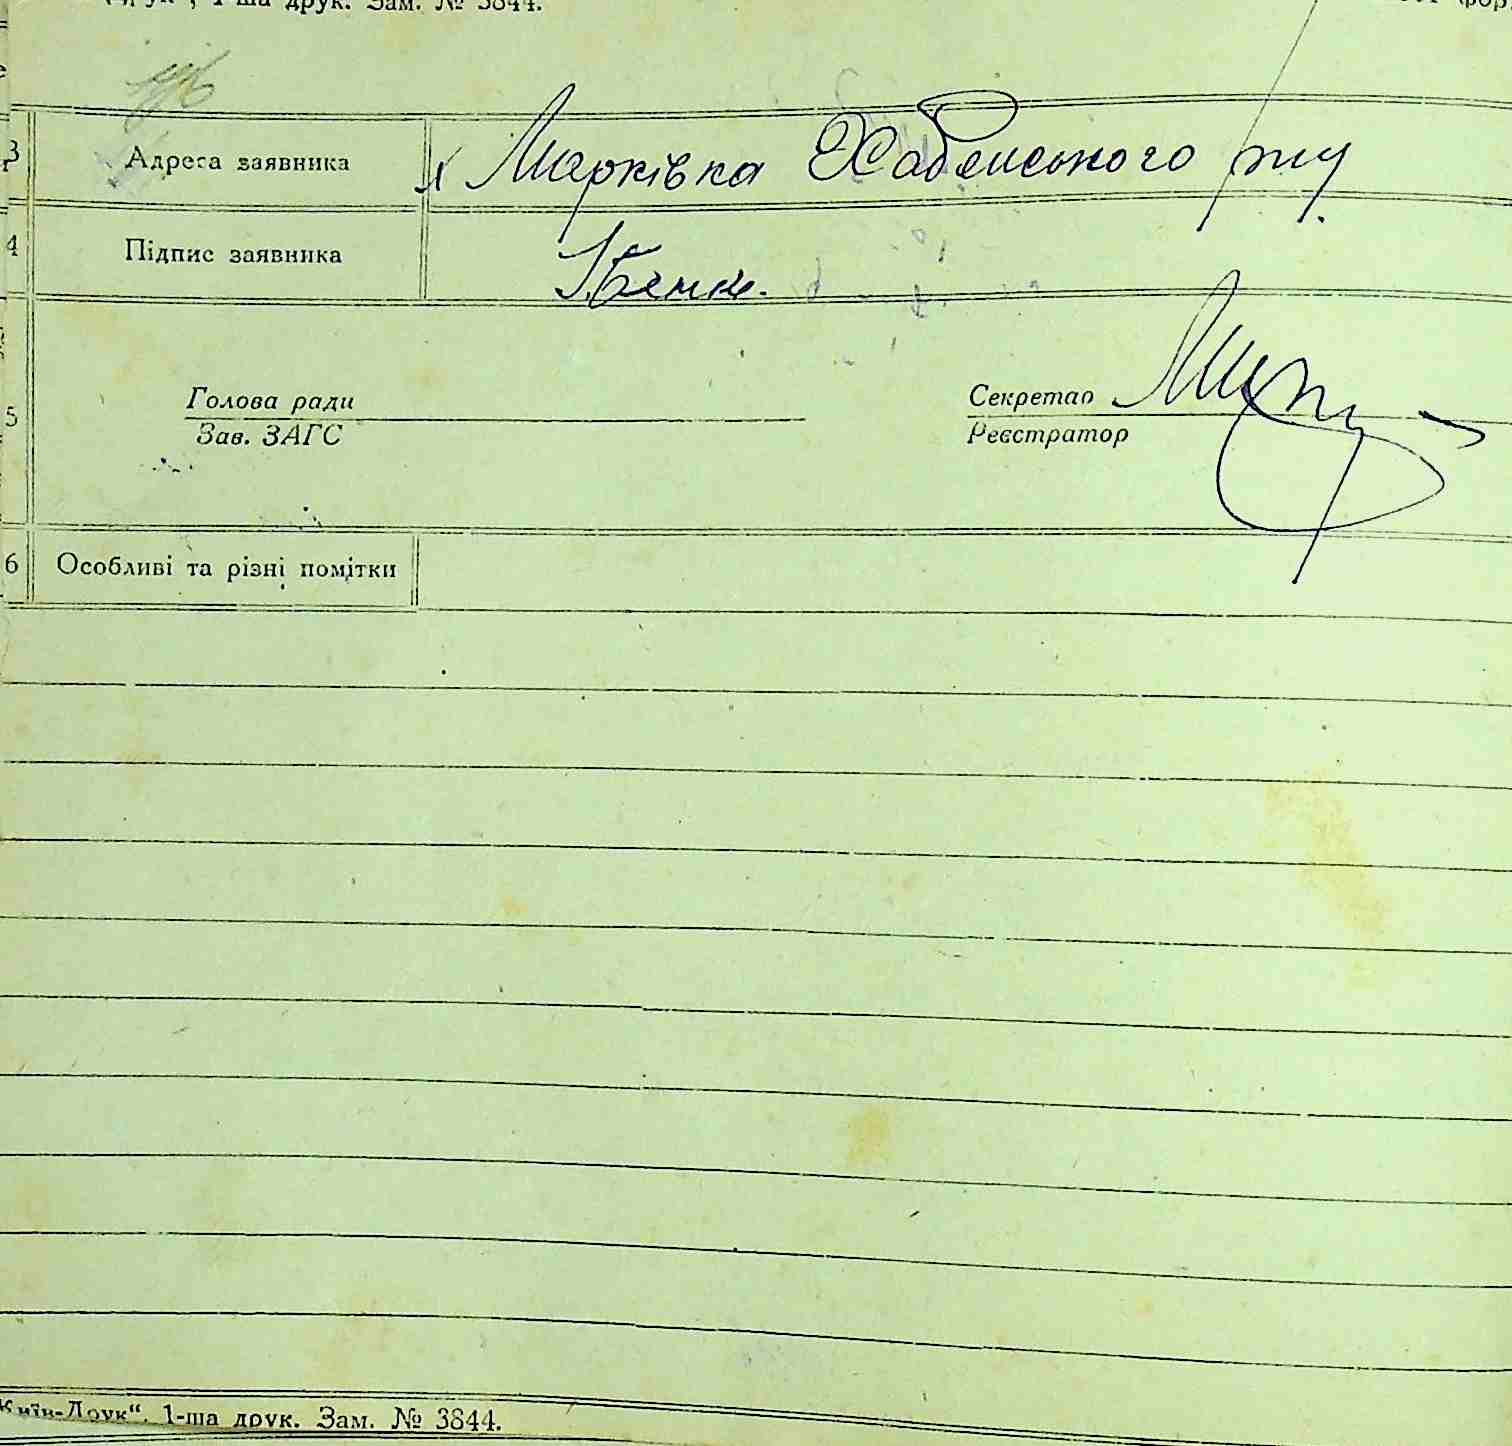 1-ша друк. Зам. № 3844.
Адреса заявника
х Марківка Хабенського р-ну
4
Підпис заявника
5
Голова ради
Секретар
Зав. ЗАГС
Реєстратор
6 Особливі та різні помітки
Київ-Друк“. 1-ша друк. Зам. № 3844.